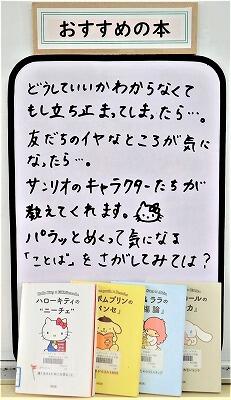 おすすめの本
どうしていいかわからなくて
もし立ち止まってしまったら…。
友だちのイヤなところが気に
なったら…。
サンリオのキャラクターたちが
教えてくれます。
パラッとめくって気になる
「ことば」をさがしてみては？
ハローキティの
“ニーチェ”
ポムプリンの
ンセ』
＆ララの
論』
ロールの
カ』